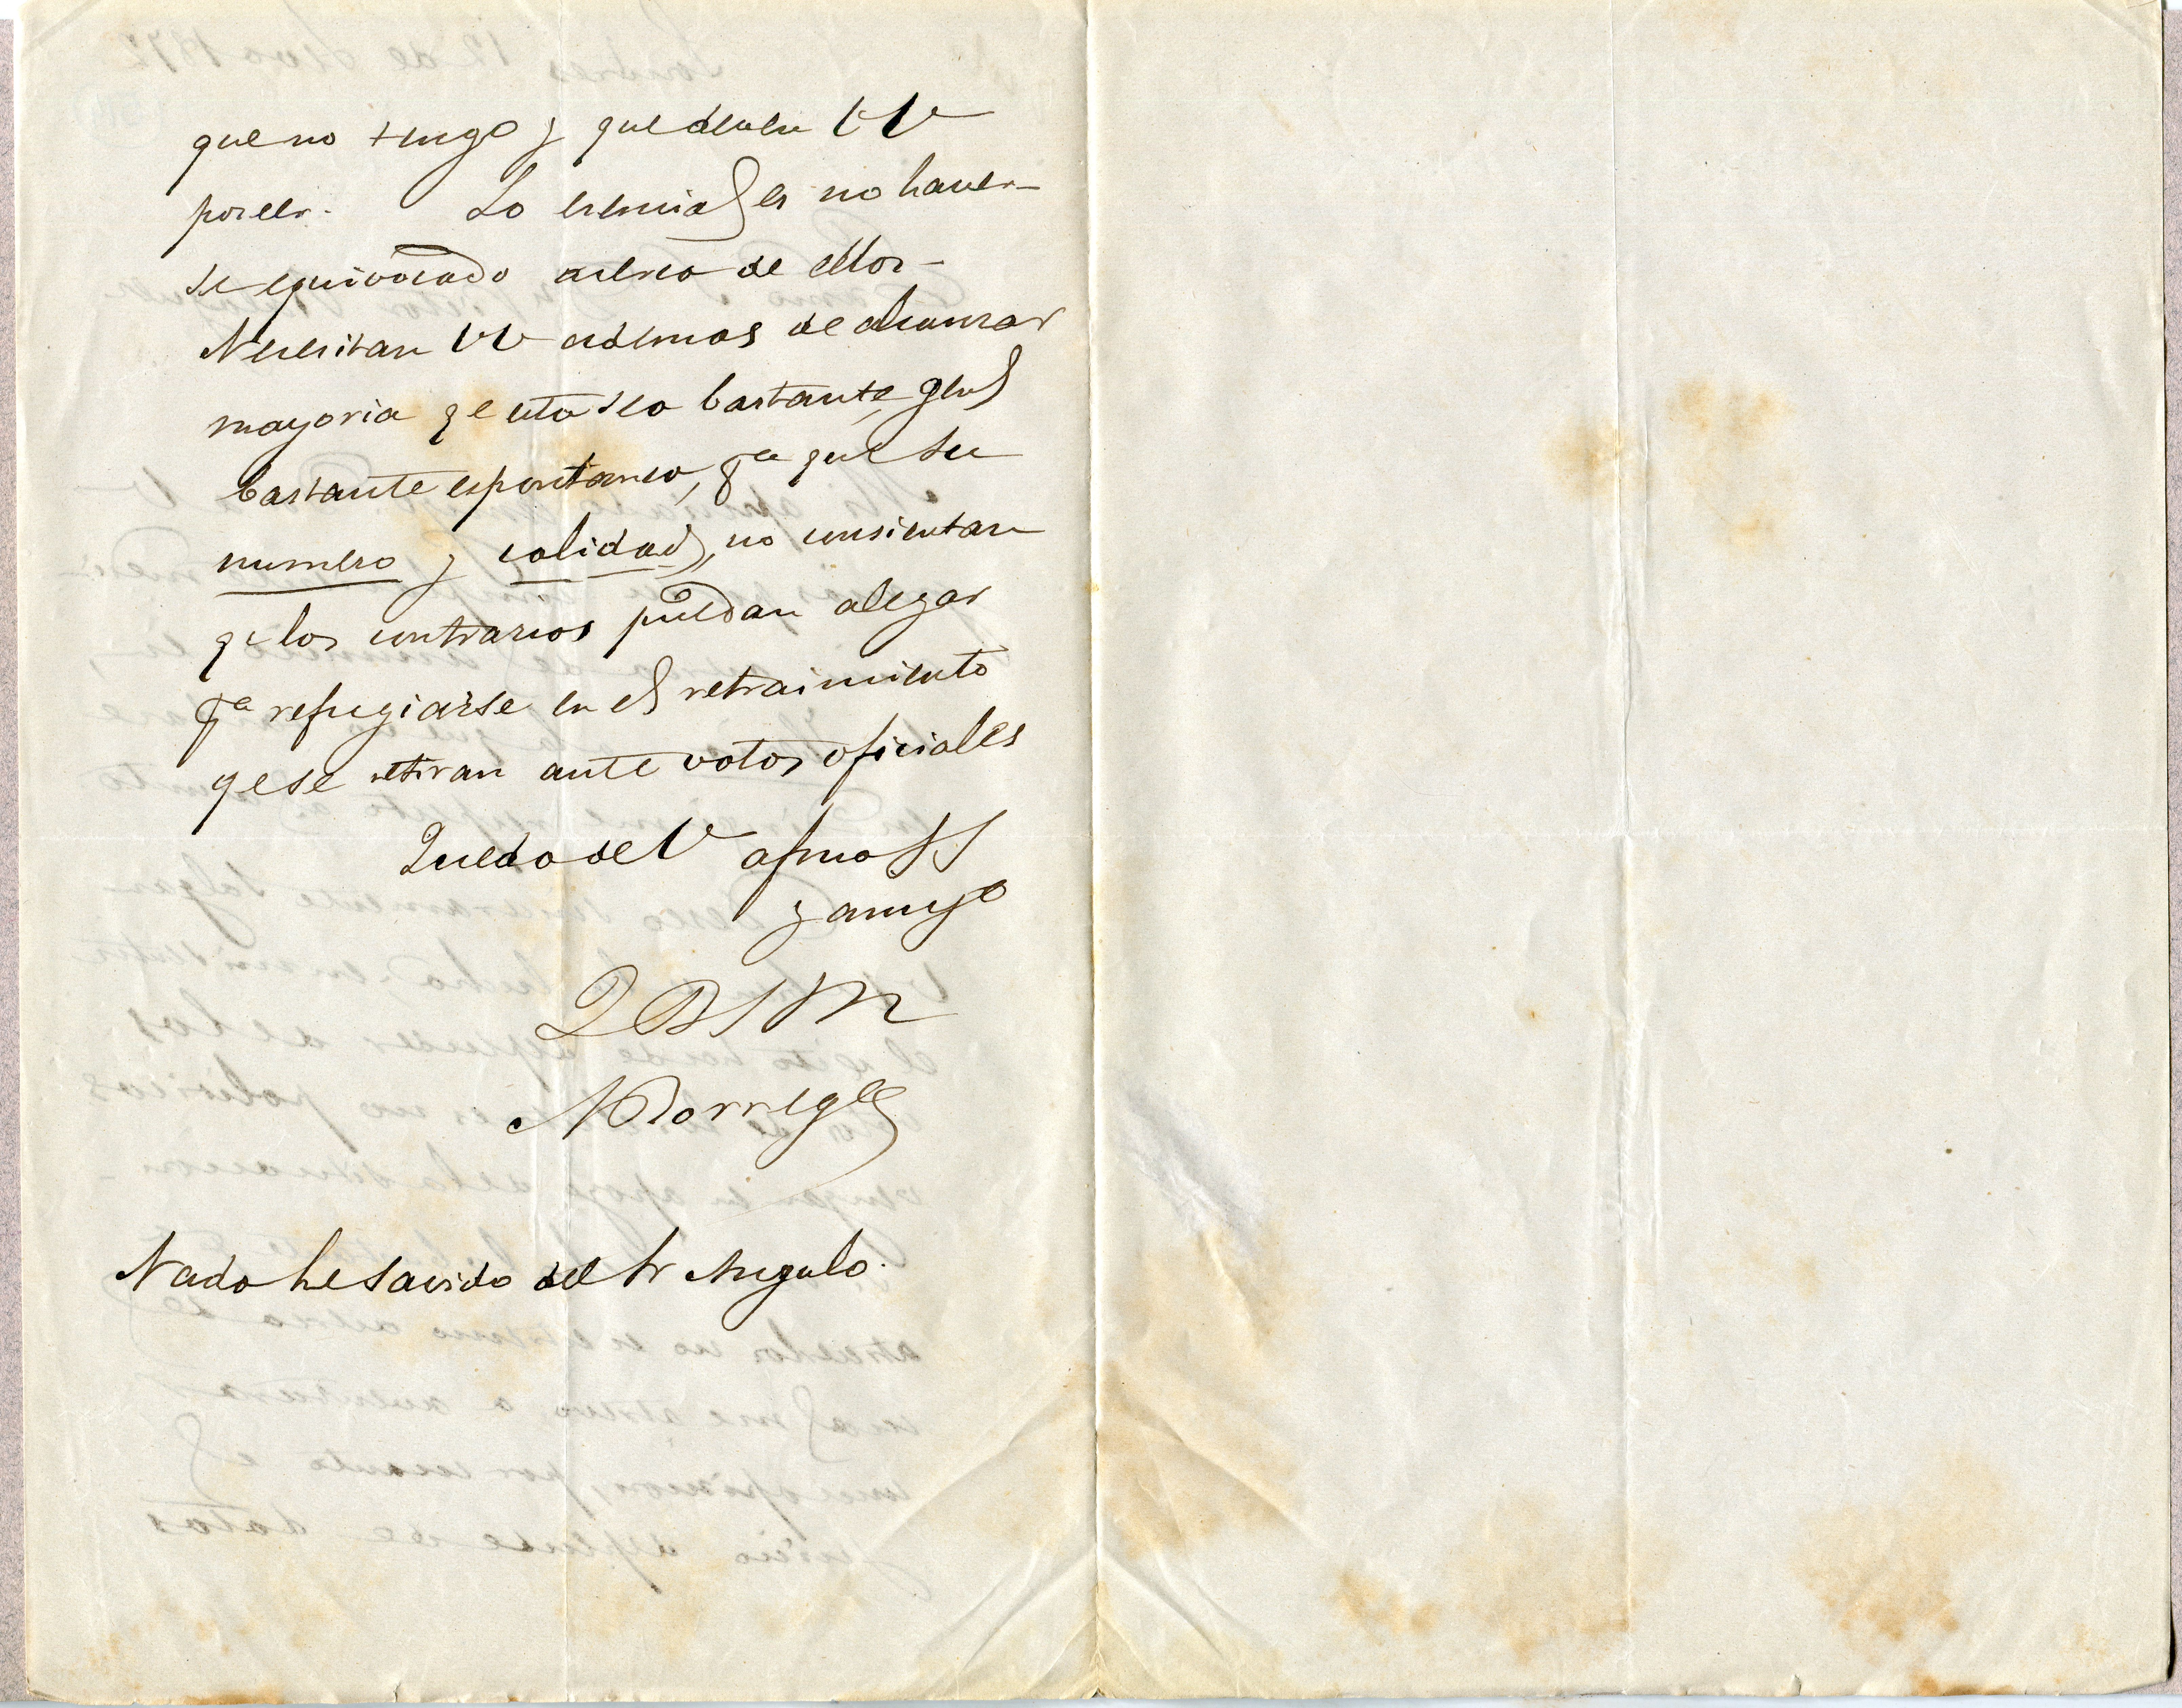 que no tengo y que deben VV
poseer. Lo esencial es no haver-
se equivocado acerca de ellos -
Necesitan VV ademas de alcanzar
mayoria qe esta sea bastante gral
bastante espontanea, pa que su
numero y calidad, no consientan
qe los contrarios puedan alegar
pa refugiarse en el retraimiento
qe se retiran ante votos oficiales
Quedo de V afmo SS
y amigo
QBSM
Nada he savido del Sr Angulo.